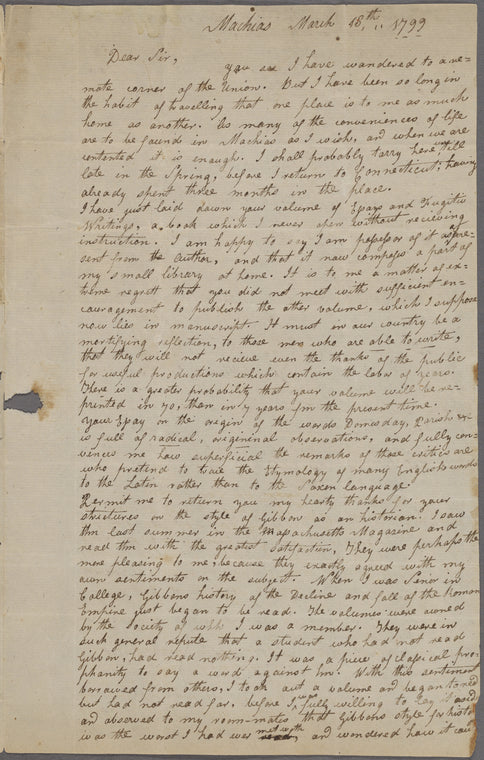 Machias March 18.th, 1799
Dear Sir,
You see I have wandered to a re=
mote corner of the Union. But I have been so long in
the habit of travelling that one place is to me as much
home as another. As many of the conveniences of life
are to be found in Machias as I wish, and when we are
contented it is enough. I shall probably tarry here till
late in the Spring, before I return to Connecticut; having
already spent three months in the place.
I have just laid down your volume of Essays and Fugitiv
Writings, a book which I never open without recieving
instruction. I am happy to say I am possessor of it as a pre-
sent from the Author, and that it now composes a part of
my small library at home. It is to me a matter of ex-
treme regrett that you did not meet with sufficient en-
couragement to publish the other volume, which I suppose
now lies in manuscript. It must in our country be a
mortifying reflection, to those men who are able to write,
that they will not recieve even the thanks of the public
for useful productions which contain the labor of years.
There is a greater probability that your volume will be re-
printed in 70, then in 7 years from the present time.
Your Essay on the origin of the words Domesday, Parish &c
is full of radical, origineral observations, and fully con-
vinces me how superficial the remarks of those critics are
who pretend to trace the Etymology of many English words
to the Latin rather than to the Saxon language.
Permit me to return you my hearty thanks for your
strictures on the style of Gibbon as an historian. I saw
thm last summer in the Massachusetts Magazine and
read thm with the greatest satisfaction, They were perhaps the
more pleasing to me, because they exactly agreed with my
own sentiments on the subject. When I was Senior in
College, Gibbons history of the Decline and fall of the Roman
Empire just began to be read. The volumes were owned
by the Society of wh I was a member. They were in
such general repute that a student who had not read
Gibbon, had read nothing. It was a piece of classical pro-
phanity to say a word against him. With this sentiment
borrowed from others, I took out a volume and began to read
but had not read far, before I was fully willing to lay it aside
and observed to my room-mates that Gibbons style for histo
was the worst I had ever met with and wondered how it coul